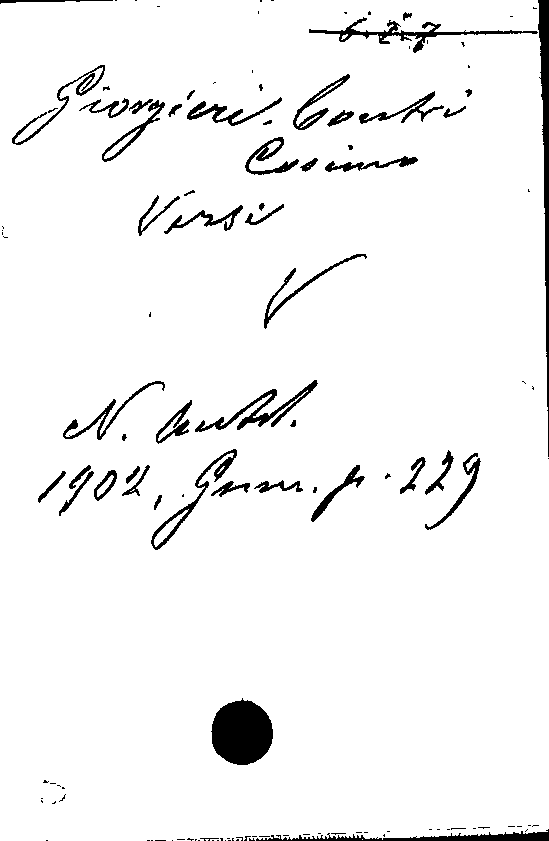 6.2.7
Giorgieri-Contri
Cosimo
Versi
V
N. Antol.
1902, Genn. p. 229